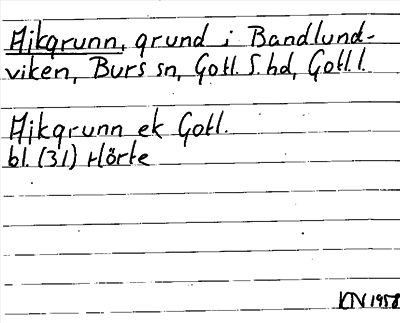 Ajkgrunn, grund i Bandlund-
viken, Burs sn, Gotl. S. hd, Gotl. l.
Ajkgrunn ek Gotl.
bl. (31) Hörte
KN 1958